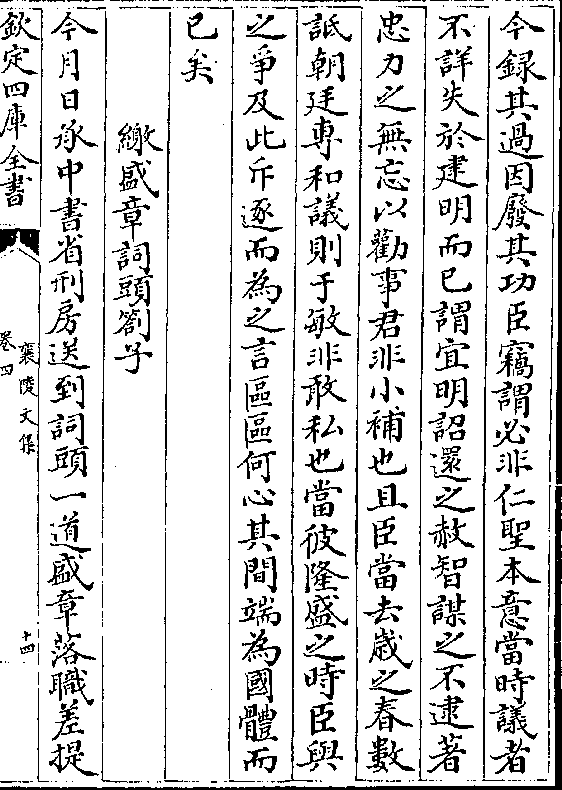 今録其過因廢其功臣竊謂必非仁聖本意當時議者
不詳失於建明而已謂宜明詔還之赦智謀之不逮著
忠力之無忘以勸事君非小補也且臣當去歲之春數
詆朝廷專和議則于敏非敢私也當彼隆盛之時臣與
之爭及此斥逐而為之言區區何心其間端為國體而
已矣
繳盛章詞頭劄子
今月日承中書省刑房送到詞頭一道盛章落職差提
欽定四庫全書
襄陵文集
卷四
十四